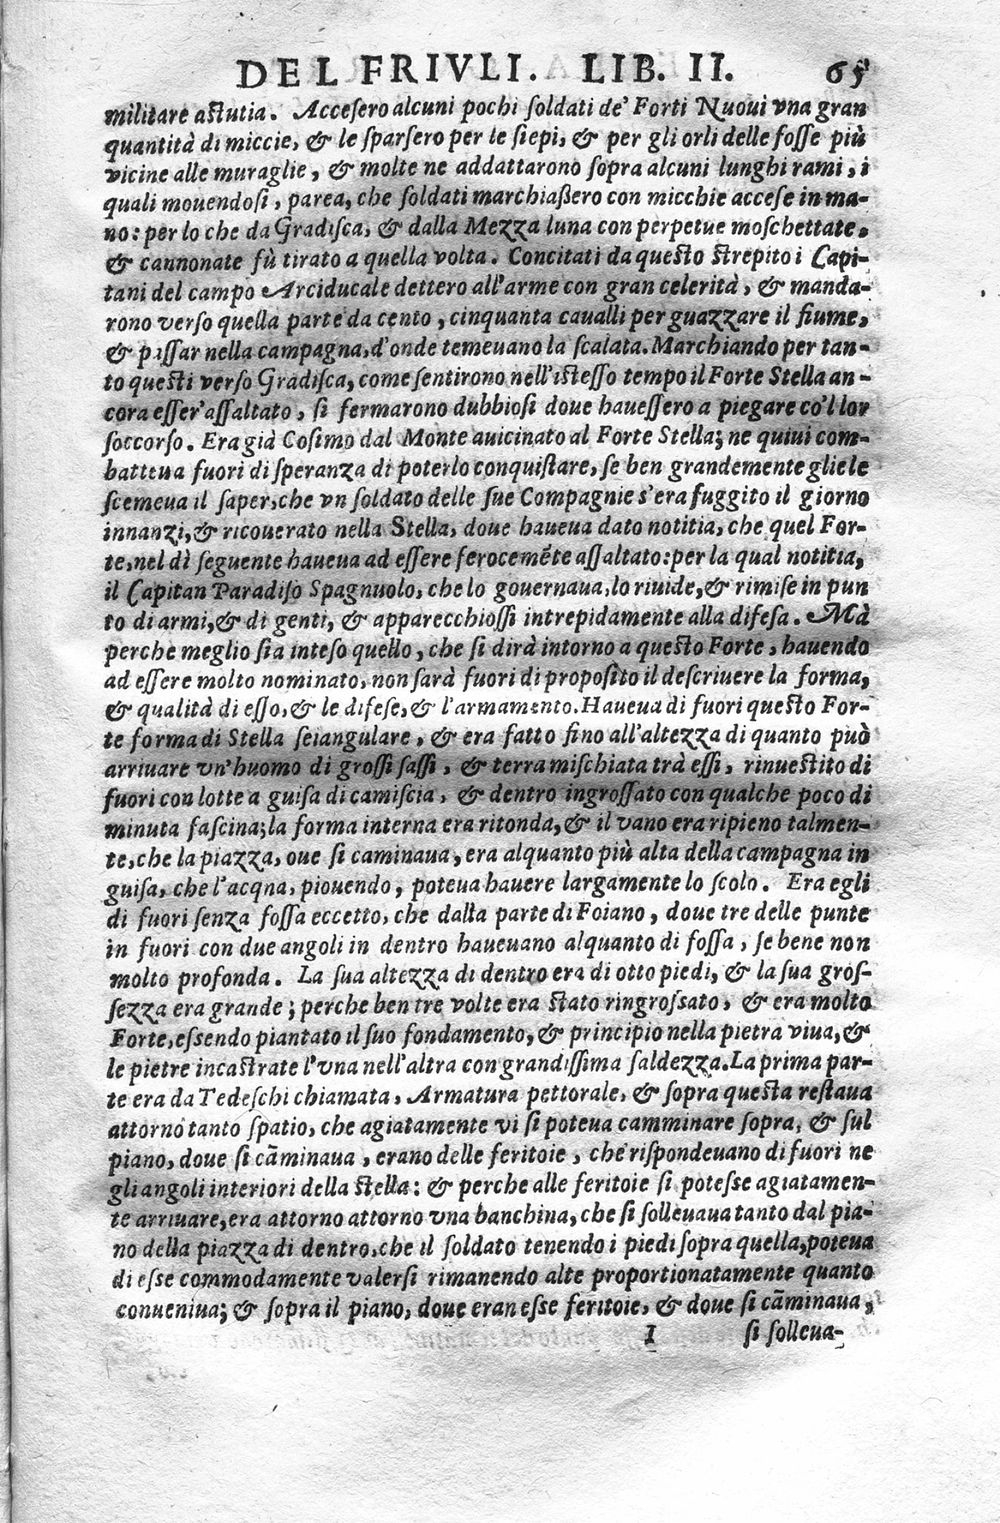 DEL FRIVLI. LIB. II. 65
militare astutia. Accesero alcuni pochi soldati de' Forti Nuoui vna gran
quantità di miccie, & le sparsero per le siepi, & per gli orli delle fosse più
vicine alle muraglie, & molte ne addattarono sopra alcuni lunghi rami, i
quali mouendosi, parea, che soldati marchiaßero con micchie accese in ma-
no: per lo che da Gradisca, & dalla Mezza luna con perpetue moschettate,
& cannonate fù tirato a quella volta. Concitati da questo strepito i Capi-
tani del campo Arciducale dettero all'arme con gran celerità, & manda-
rono verso quella parte da cento, cinquanta caualli per guazzare il fiume,
& passar nella campagna, d'onde temeuano la scalata. Marchiando per tan-
to questi verso Gradisca, come sentirono nell'istesso tempo il Forte Stella an-
cora esser'assaltato, si fermarono dubbiosi doue hauessero a piegare co'l lor
soccorso. Era già Cosimo dal Monte auicinato al Forte Stella; ne quiui com-
batteua fuori di speranza di poterlo conquistare, se ben grandemente gliele
scemeua il saper, che vn soldato delle sue Compagnie s'era fuggito il giorno
innanzi, & ricouerato nella Stella, doue haueua dato notitia, che quel For-
te, nel dì seguente haueua ad essere ferocemẽte assaltato: per la qual notitia,
il Capitan Paradiso Spagnuolo, che lo gouernaua, lo riuide, & rimise in pun
to di armi, & di genti, & apparecchiossi intrepidamente alla difesa. Mà
perche meglio sia inteso quello, che si dirà intorno a questo Forte, hauendo
ad essere molto nominato, non sarà fuori di proposito il descriuere la forma,
& qualità di esso, & le difese, & l'armamento. Haueua di fuori questo For-
te forma di Stella seiangulare, & era fatto fino all'altezza di quanto può
arriuare vn'huomo di grossi sassi, & terra mischiata trà essi, rinuestito di
fuori con lotte a guisa di camiscia, & dentro ingrossato con qualche poco di
minuta fascina; la forma interna era ritonda, & il vano era ripieno talmen-
te, che la piazza, oue si caminaua, era alquanto più alta della campagna in
guisa, che l'acqna, piouendo, poteua hauere largamente lo scolo. Era egli
di fuori senza fossa eccetto, che dalla parte di Foiano, doue tre delle punte
in fuori con due angoli in dentro haueuano alquanto di fossa, se bene non
molto profonda. La sua altezza di dentro era di otto piedi, & la sua gros-
sezza era grande; perche ben tre volte era stato ringrossato, & era molto
Forte, essendo piantato il suo fondamento, & principio nella pietra viua, &
le pietre incastrate l'vna nell'altra con grandissima saldezza. La prima par-
te era da Tedeschi chiamata, Armatura pettorale, & sopra questa restaua
attorno tanto spatio, che agiatamente vi si poteua camminare sopra, & sul
piano, doue si cãminaua, erano delle feritoie, che rispondeuano di fuori ne
gli angoli interiori della stella: & perche alle feritoie si potesse agiatamen-
te arriuare, era attorno attorno vna banchina, che si solleuaua tanto dal pia-
no della piazza di dentro, che il soldato tenendo i piedi sopra quella, poteua
di esse commodamente valersi rimanendo alte proportionatamente quanto
conueniua; & sopra il piano, doue eran esse feritoie, & doue si cãminaua,
I si solleua-